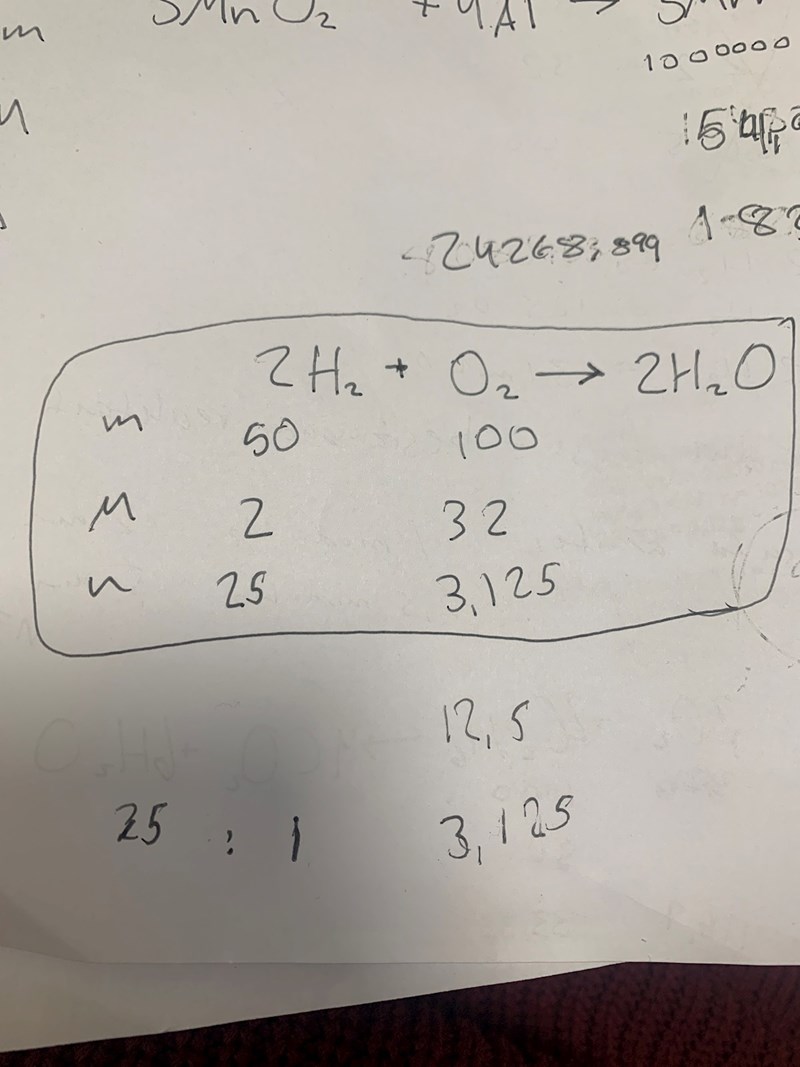 m 3MnO₂ + 4Al →
1000000
M
24268,899
2H₂ + O₂ → 2H₂O
m 50 100
M 2 32
n 25 3,125
12,5
25 : 1 3,125